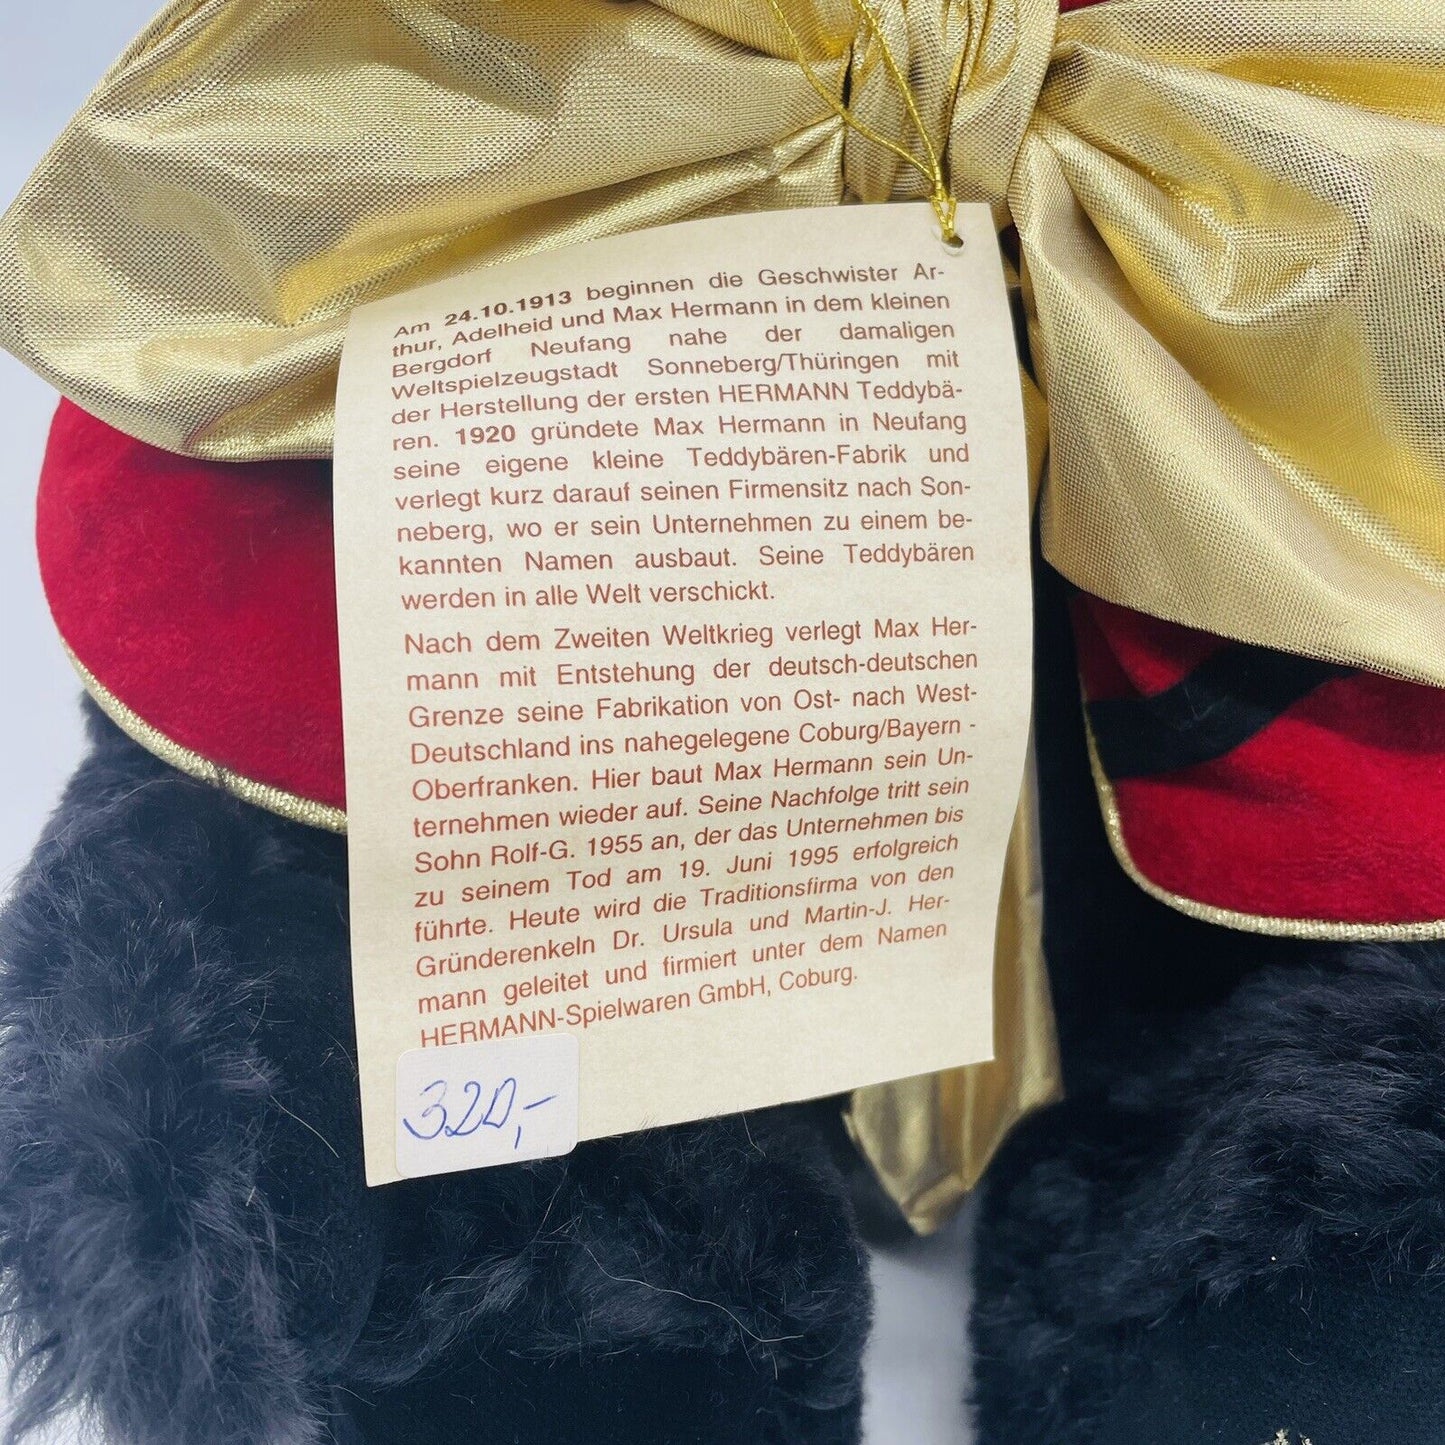 Am 24.10.1913 beginnen die Geschwister Ar-
thur, Adelheid und Max Hermann in dem kleinen
Bergdorf Neufang nahe der damaligen
Weltspielzeugstadt Sonneberg/Thüringen mit
der Herstellung der ersten HERMANN Teddybä-
ren. 1920 gründete Max Hermann in Neufang
seine eigene kleine Teddybären-Fabrik und
verlegt kurz darauf seinen Firmensitz nach Son-
neberg, wo er sein Unternehmen zu einem be-
kannten Namen ausbaut. Seine Teddybären
werden in alle Welt verschickt.
Nach dem Zweiten Weltkrieg verlegt Max Her-
mann mit Entstehung der deutsch-deutschen
Grenze seine Fabrikation von Ost- nach West-
Deutschland ins nahegelegene Coburg/Bayern -
Oberfranken. Hier baut Max Hermann sein Un-
ternehmen wieder auf. Seine Nachfolge tritt sein
Sohn Rolf-G. 1955 an, der das Unternehmen bis
zu seinem Tod am 19. Juni 1995 erfolgreich
führte. Heute wird die Traditionsfirma von den
Gründerenkeln Dr. Ursula und Martin-J. Her-
mann geleitet und firmiert unter dem Namen
HERMANN-Spielwaren GmbH, Coburg.
320,-